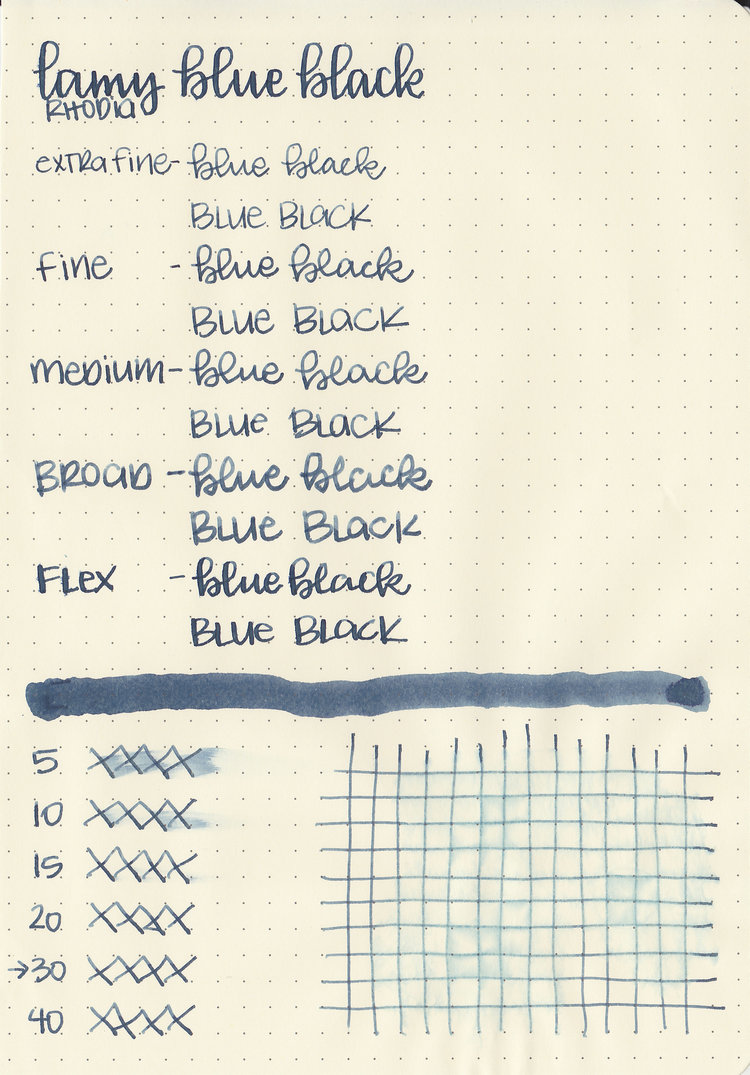 lamy blue black
RHODIA
extra fine - blue black
BLUE BLACK
fine - blue black
BLUE BLACK
medium - blue black
BLUE BLACK
BROAD - blue black
BLUE BLACK
FLEX - blue black
BLUE BLACK
5 XXXX
10 XXXX
15 XXXX
20 XXXX
→30 XXXX
40 XXXX